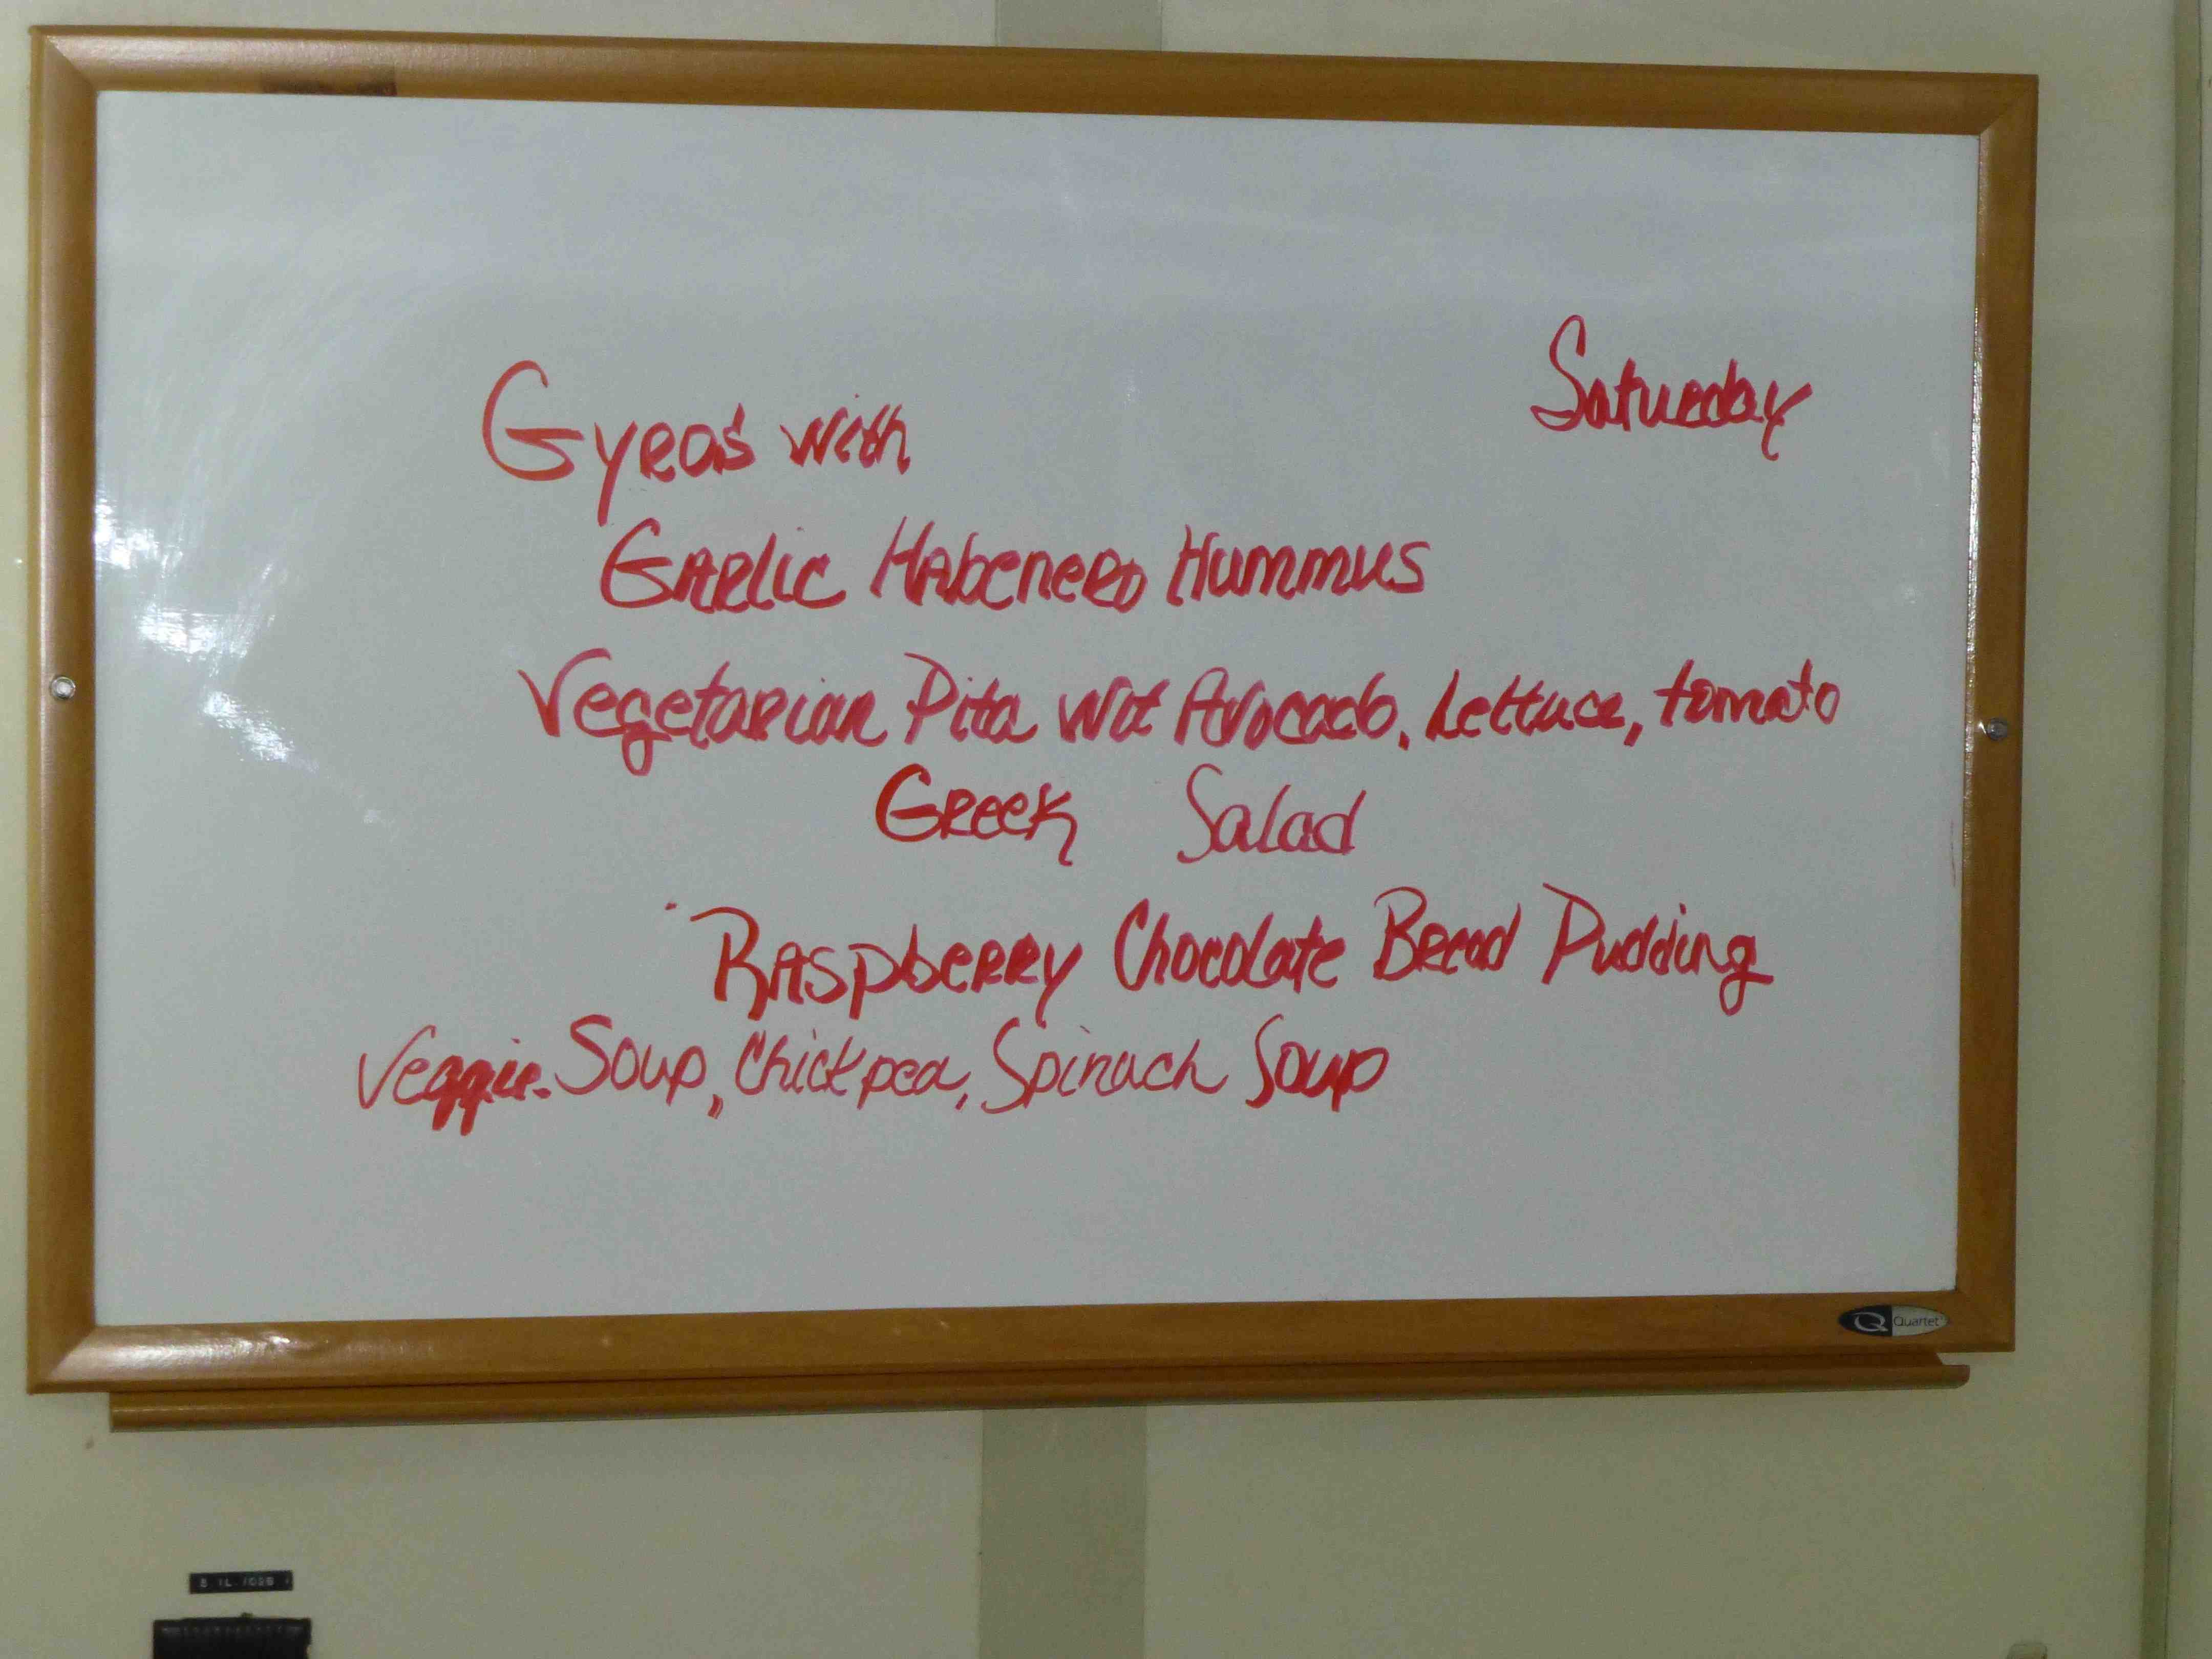 Saturday
Gyro's with
Garlic Habenero Hummus
Vegetarian Pita Wit Avocado, Lettuce, tomato
Greek Salad
Raspberry Chocolate Bread Pudding
Veggie Soup, Chickpea, Spinach Soup
Q Quartet